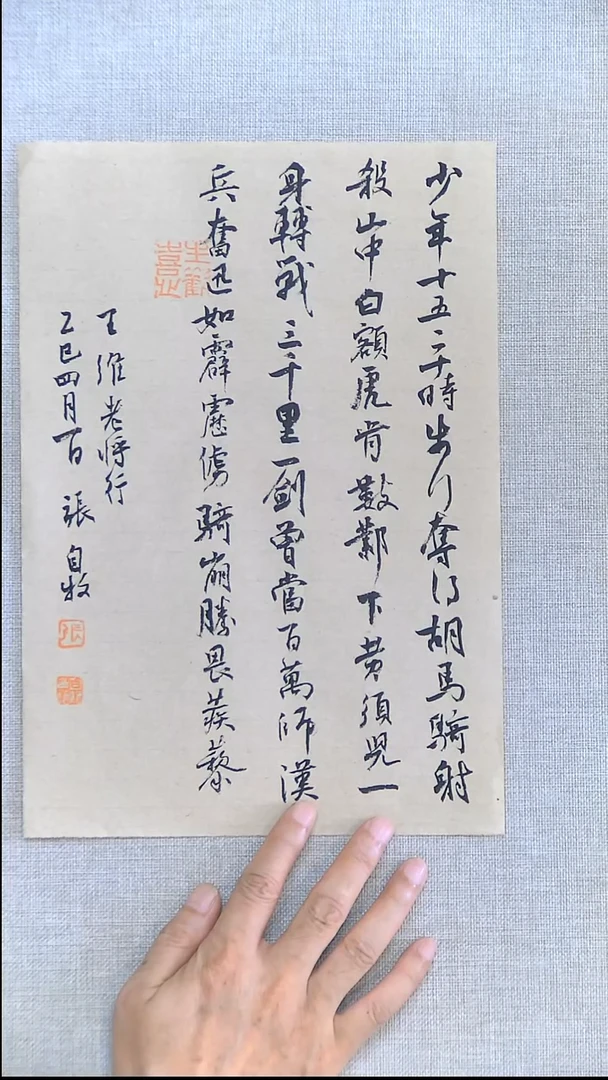 少年十五二十時步行奪得胡馬騎射
殺山中白額虎肯數鄴下黃須兒一
身轉戰三千里一劍曾當百萬師漢
兵奮迅如霹靂虜騎崩騰畏蒺藜
王維老將行
乙巳四月一日 張自牧
張